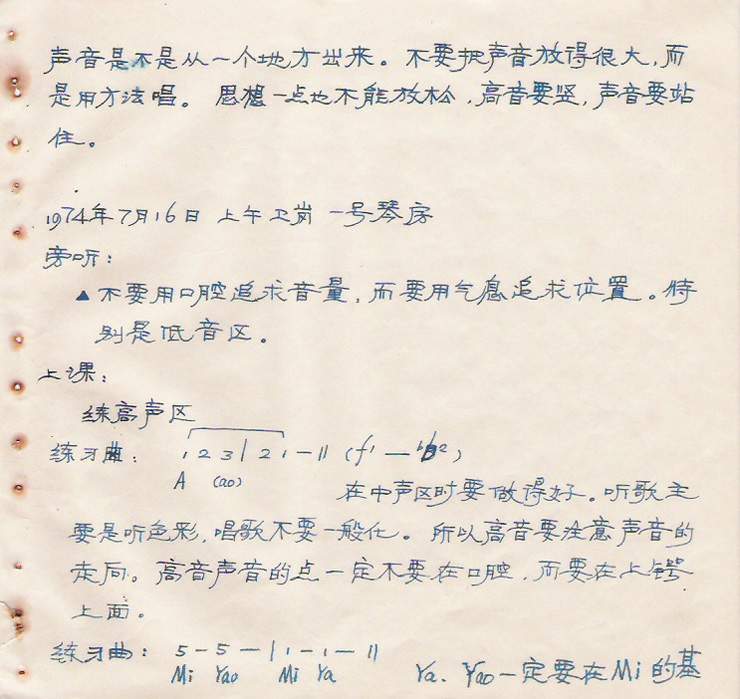 声音是不是从一个地方出来。不要把声音放得很大，而
是用方法唱。思想一点也不能放松，高音要竖，声音要站
住。
1974年7月16日 上午 卫岗 一号琴房
旁听：
▲不要用口腔追求音量，而要用气息追求位置。特
别是低音区。
上课：
练高声区
练习曲： 1 2 3 | 2 1 - || (f¹ — ᵇb²)
A (ao)
在中声区时要做得好。听歌主
要是听色彩，唱歌不要一般化。所以高音要注意声音的
走向。高音声音的点一定不要在口腔，而要在上锷
上面。
练习曲： 5 - 5 - | 1 - 1 - ||
Mi Yao Mi Ya
Ya、Yao一定要在Mi的基